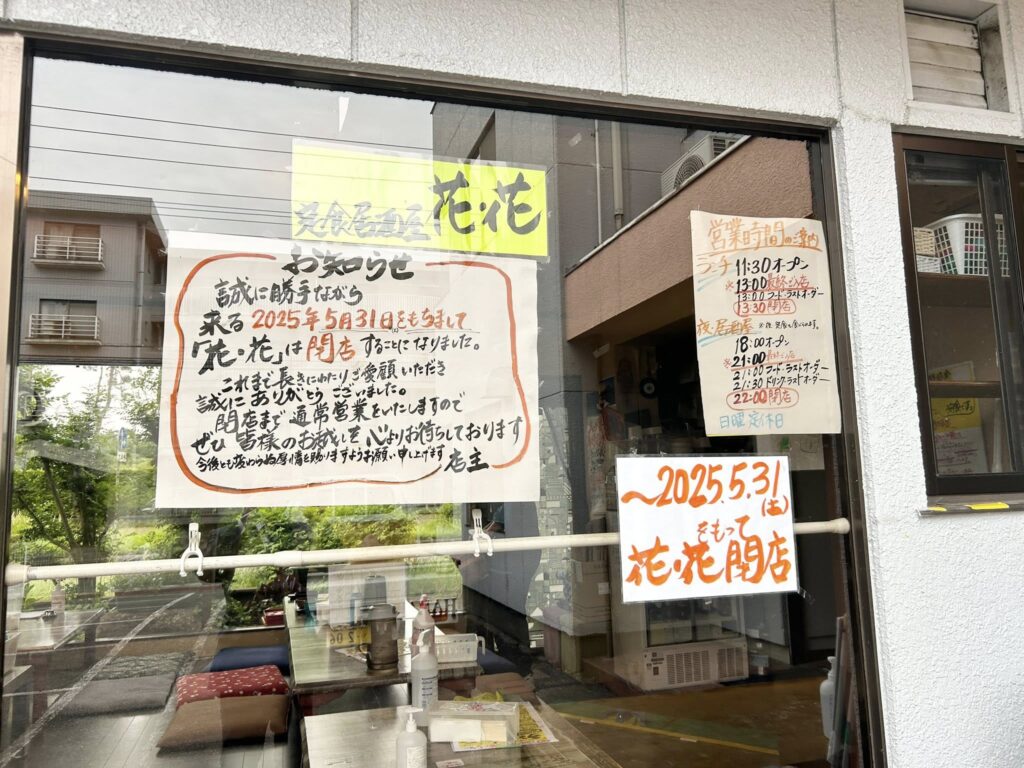 定食居酒屋 花・花
お知らせ
誠に勝手ながら
来る2025年5月31日をもちまして
「花・花」は閉店することになりました。
これまで長きにわたりご愛顧いただき
誠にありがとうございました。
閉店まで通常営業をいたしますので
ぜひ皆様のお越しを心よりお待ちしております
今後とも変わらぬ厚情を賜りますようお願い申し上げます
店主
営業時間のご案内
ランチ 11:30 オープン
※13:00 最終入店
13:00 フード・ラストオーダー
13:30 閉店
夜居酒屋 ※夜定食も食べられます。
18:00 オープン
※21:00 最終入店
21:00 フード・ラストオーダー
21:30 ドリンク・ラストオーダー
22:00 閉店
日曜定休日
〜2025.5.31
(土)
をもって
花・花閉店